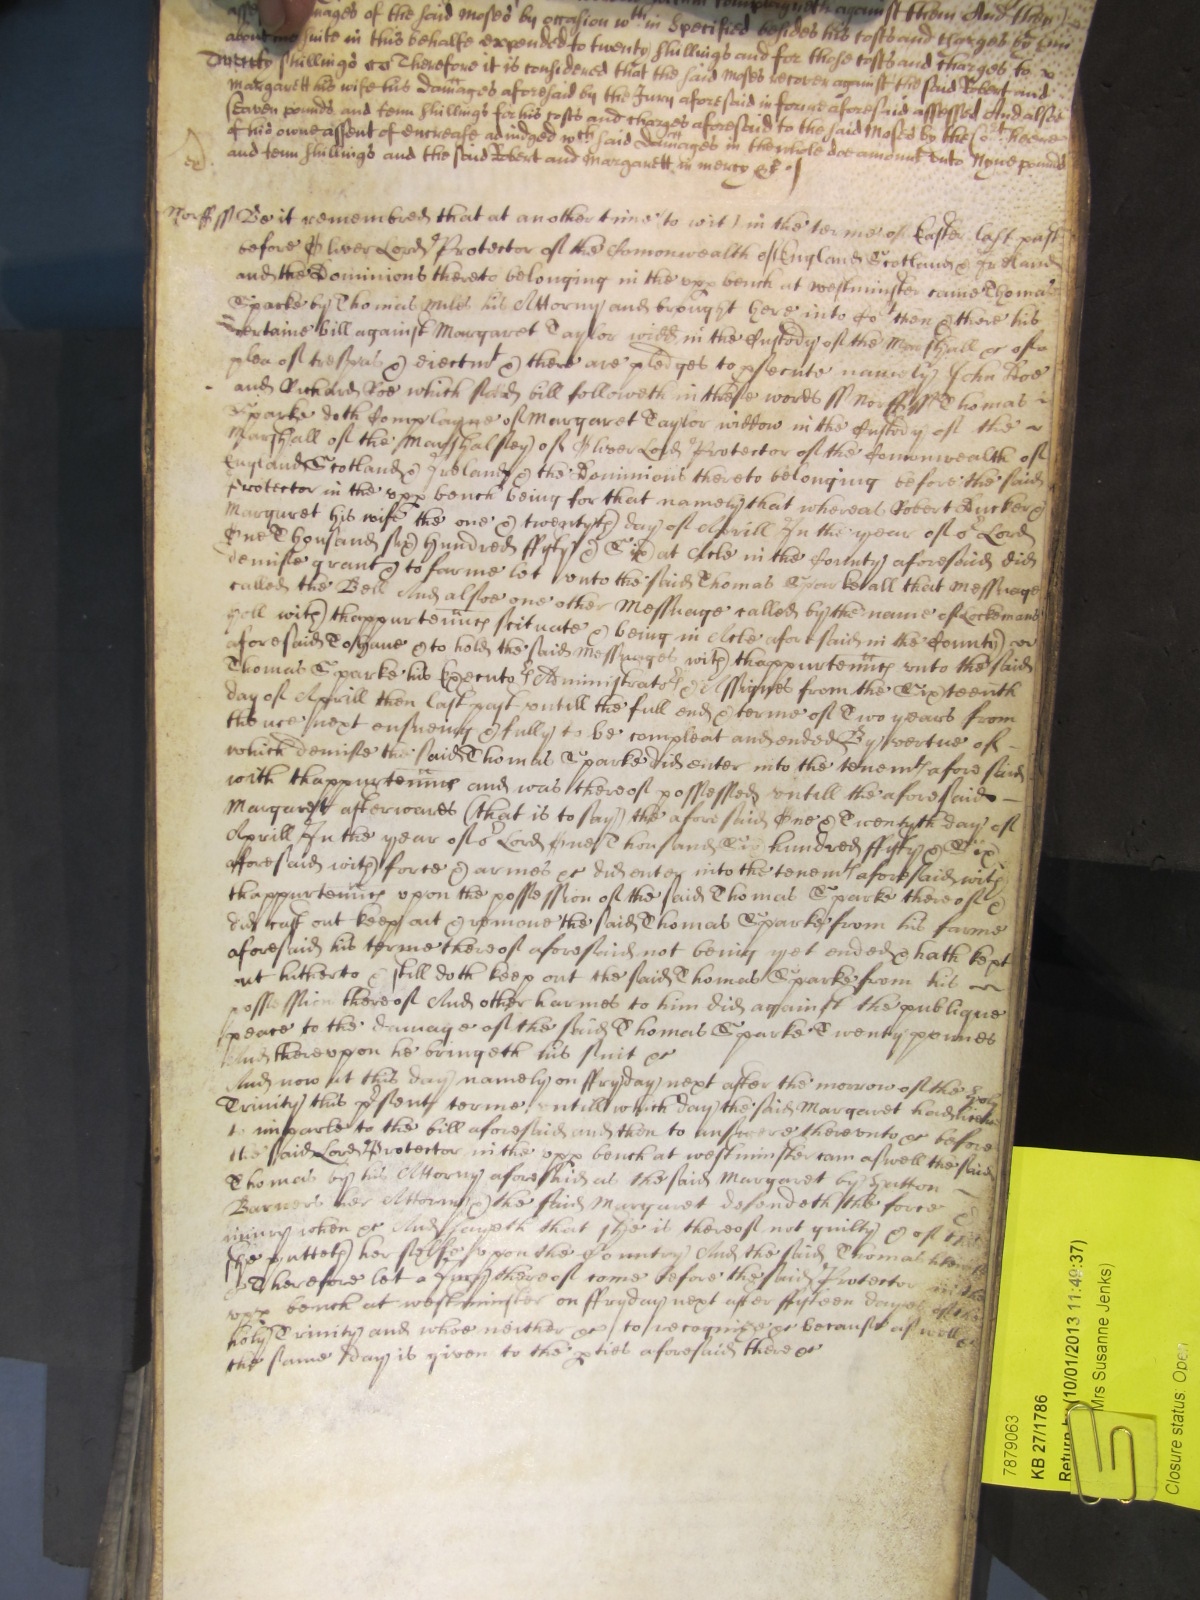 damages of the said Moses by occasion wthin Specified besides his costs and charges by him
about his suite in this behalfe expended to twenty shillings and for those costs and charges to
Twenty shillings &c Therefore it is considered that the said Moses recover against the said Robert and
Margarett his wife his damages aforesaid by the Jury aforesaid in forme aforesaid assessed And alsoe
Seaven pounds and tenn shillings for his costs and charges aforesaid to the said Moses by the Cort heere
of his owne assent of encrease adiudged wch said damages in the whole doe amount vnto Nyne pounds
and tenn shillings and the said Robert and Margarett in mercy &c
Norff ss Be it remembred that at another time (to wit) in the terme of Easter last past
before Oliver Lord Protector of the Comonwealth of England Scotland & Ireland
and the Dominions thereto belonging in the vpp bench at Westminster came Thomas
Sparke by Thomas Miles his Attorny and brought here into Cort then & there his
certaine bill against Margaret Taylor widd in the Custody of the Marshall &c of a
plea of trespas & eiectmt & there are pledges to psecute namely John Doe
and Richard Roe which said bill followeth in these words ss Norff ss Thomas
Sparke doth Complayne of Margaret Taylor widdow in the Custody of the
Marshall of the Marshalsey of Oliver Lord Protector of the Comonwealth of
England Scotland & Ireland & the Dominions thereto belonging before the said
Protector in the vpp bench being for that namely that whereas Robert Ducker &
Margaret his wife the one & twentyth day of Aprill In the year of or Lord
One Thousand six Hundred ffyfty & Six at Acle in the County aforesaid did
demise grant & to farme let vnto the said Thomas Sparke all that Messuage
called the Bell And alsoe one other Messuage called by the name of Lockemans
with thappurtenncs scituate & being in Acle aforesaid in the County
aforesaid To haue & to hold the said Messuages with thappurtenncs vnto the said
Thomas Sparke his Executors Administrators & Assignes from the Sixteenth
day of Aprill then last past vntill the full end & terme of Two years from
thence next ensueing & fully to be compleat and ended By vertue of
which demise the said Thomas Sparke did enter into the tenemts aforesaid
with thappurtenncs and was thereof possessed vntill the aforesaid
Margaret afterwards (that is to say) the aforesaid One & Twentyth day of
Aprill In the year of or Lord One Thousand Six hundred ffyfty & Six
afforesaid with force & armes &c did enter into the tenemts aforesaid with
thappurtenncs vpon the possession of the said Thomas Sparke thereof &
did cast out keep out & remoue the said Thomas Sparke from his farme
aforesaid his terme thereof aforesaid not being yet ended & hath kept
out hitherto & still doth keep out the said Thomas Sparke from his
possession thereof And other harmes to him did against the publique
peace to the damage of the said Thomas Sparke Twenty pounes
And therevpon he bringeth his suit &c
And now at this day namely on ffryday next after the morrow of the holy
Trinity this psent terme vntill which day the said Margaret had licence
to imparle to the bill aforesaid and then to answere therevnto &c before
the said Lord Protector in the vpp bench at westminster cam aswell the said
Thomas by his Attorny aforesaid as the said Margaret by Sutton
Barners her Attorny & the said Margaret defendeth the force &
iniury when &c And sayeth that she is thereof not guilty & of this
she putteth her selfe vpon the Country And the said Thomas likewise
Therefore let a Jury thereof come before the said Protector in the
vpp bench at westminster on ffryday next after ffifteen dayes of the
holy Trinity and whoe neither &c to recognize &c because as well &c
the same day is given to the pties aforesaid there &c
7879063
KB 27/1786
Return by (10/01/2013 11:49:37)
Mrs Susanne Jenks)
Closure status: Open